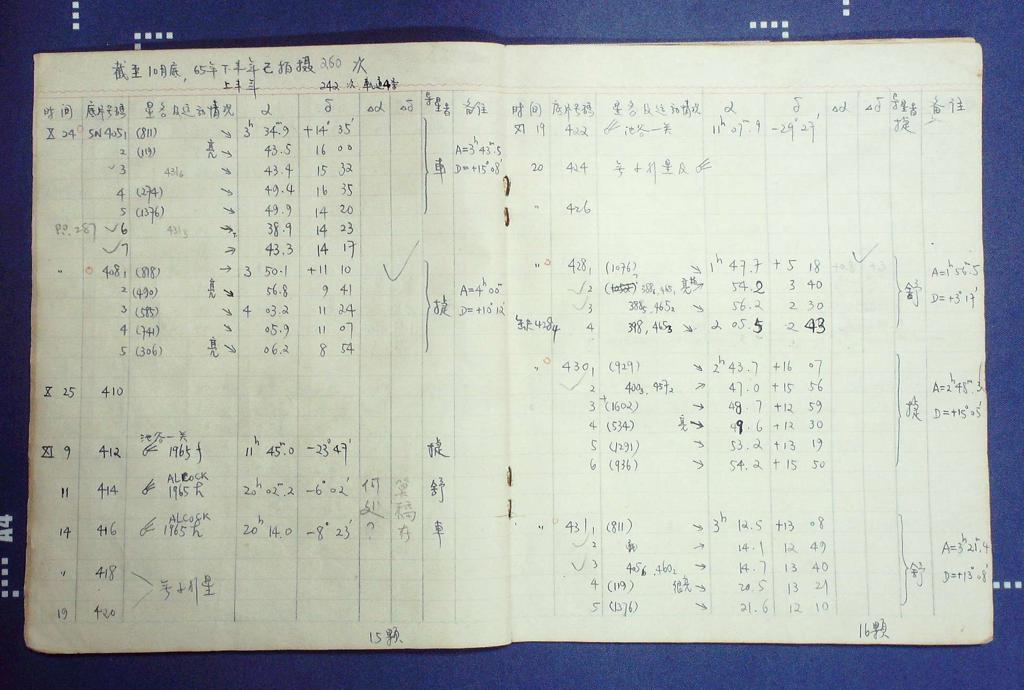 截至10月底, 65年下半年已拍摄260次
上半年 242次
时间 底片号码 星名及运动情况 α δ Δα Δδ 导星者 备注
X 24 SN 405₁ (811) → 3ʰ 34ᵐ.9 +14° 35′
2 (119) 亮 → 43.5 16 00 A=3ʰ43ᵐ.5
✓3 431₆ → 43.4 15 32 車 D=+15°08′
4 (274) → 49.4 16 35
5 (1376) → 49.9 14 20
✓6 431₃ → 38.9 14 23
✓7 → 43.3 14 17
〃 408₁ (818) → 3 50.1 +11 10
2 (490) 亮 → 56.8 9 41 A=4ʰ00ᵐ
3 (585) → 4 03.2 11 24 捷 D=+10°12′
4 (741) → 05.9 11 07
5 (306) 亮 → 06.2 8 54
X 25 410
XI 9 412 池谷一关 1965f 11ʰ 45ᵐ.0 -23° 47′ 捷
11 414 ALCOCK 1965h 20ʰ 02ᵐ.2 -6° 02′ 舒
14 416 ALCOCK 1965h 20ʰ 14.0 -8° 23′ 車
〃 418
19 420
15顆
时间 底片号码 星名及运动情况 α δ Δα Δδ 导星者 备注
XI 19 422 池谷一关 11ʰ 07ᵐ.9 -29° 27′ 捷
20 424
〃 426
〃 428₁ (1076) → 1ʰ 47ᵐ.7 +5 18 A=1ʰ56ᵐ.5
✓2 386, 465₁ → 54.2 3 40 舒 D=+3°17′
✓3 388, 465₂ → 56.2 2 30
428₄ 4 398, 465₃ → 2 05.5 2 43
430₁ (929) → 2ʰ 43ᵐ.7 +16 07
✓2 400₃, 457₂ → 47.0 +15 56 A=2ʰ48ᵐ.3
3 (1602) → 48.7 +12 59 捷 D=+15°05′
4 (534) 亮 → 49.6 +12 30
5 (1291) → 53.2 +13 19
6 (936) → 54.2 +15 50
〃 431₁ (811) → 3ʰ 12ᵐ.5 +13 08
✓2 → 14.1 12 49 A=3ʰ21ᵐ.4
✓3 405₆, 460₂ → 14.7 13 40 舒 D=+13°08′
4 (119) 很亮 → 20.5 13 21
5 (1376) → 21.6 12 10
16顆